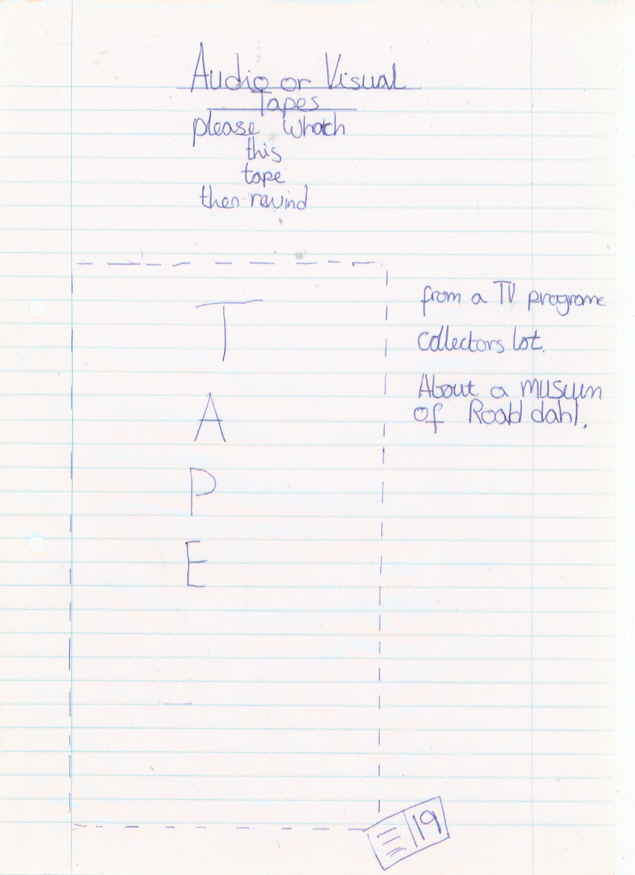 Audio or Visual
Tapes
please whatch
this
tape
then rewind
T
A
P
E
from a TV programe
collectors lot.
About a musuem
of Roald dahl.
19